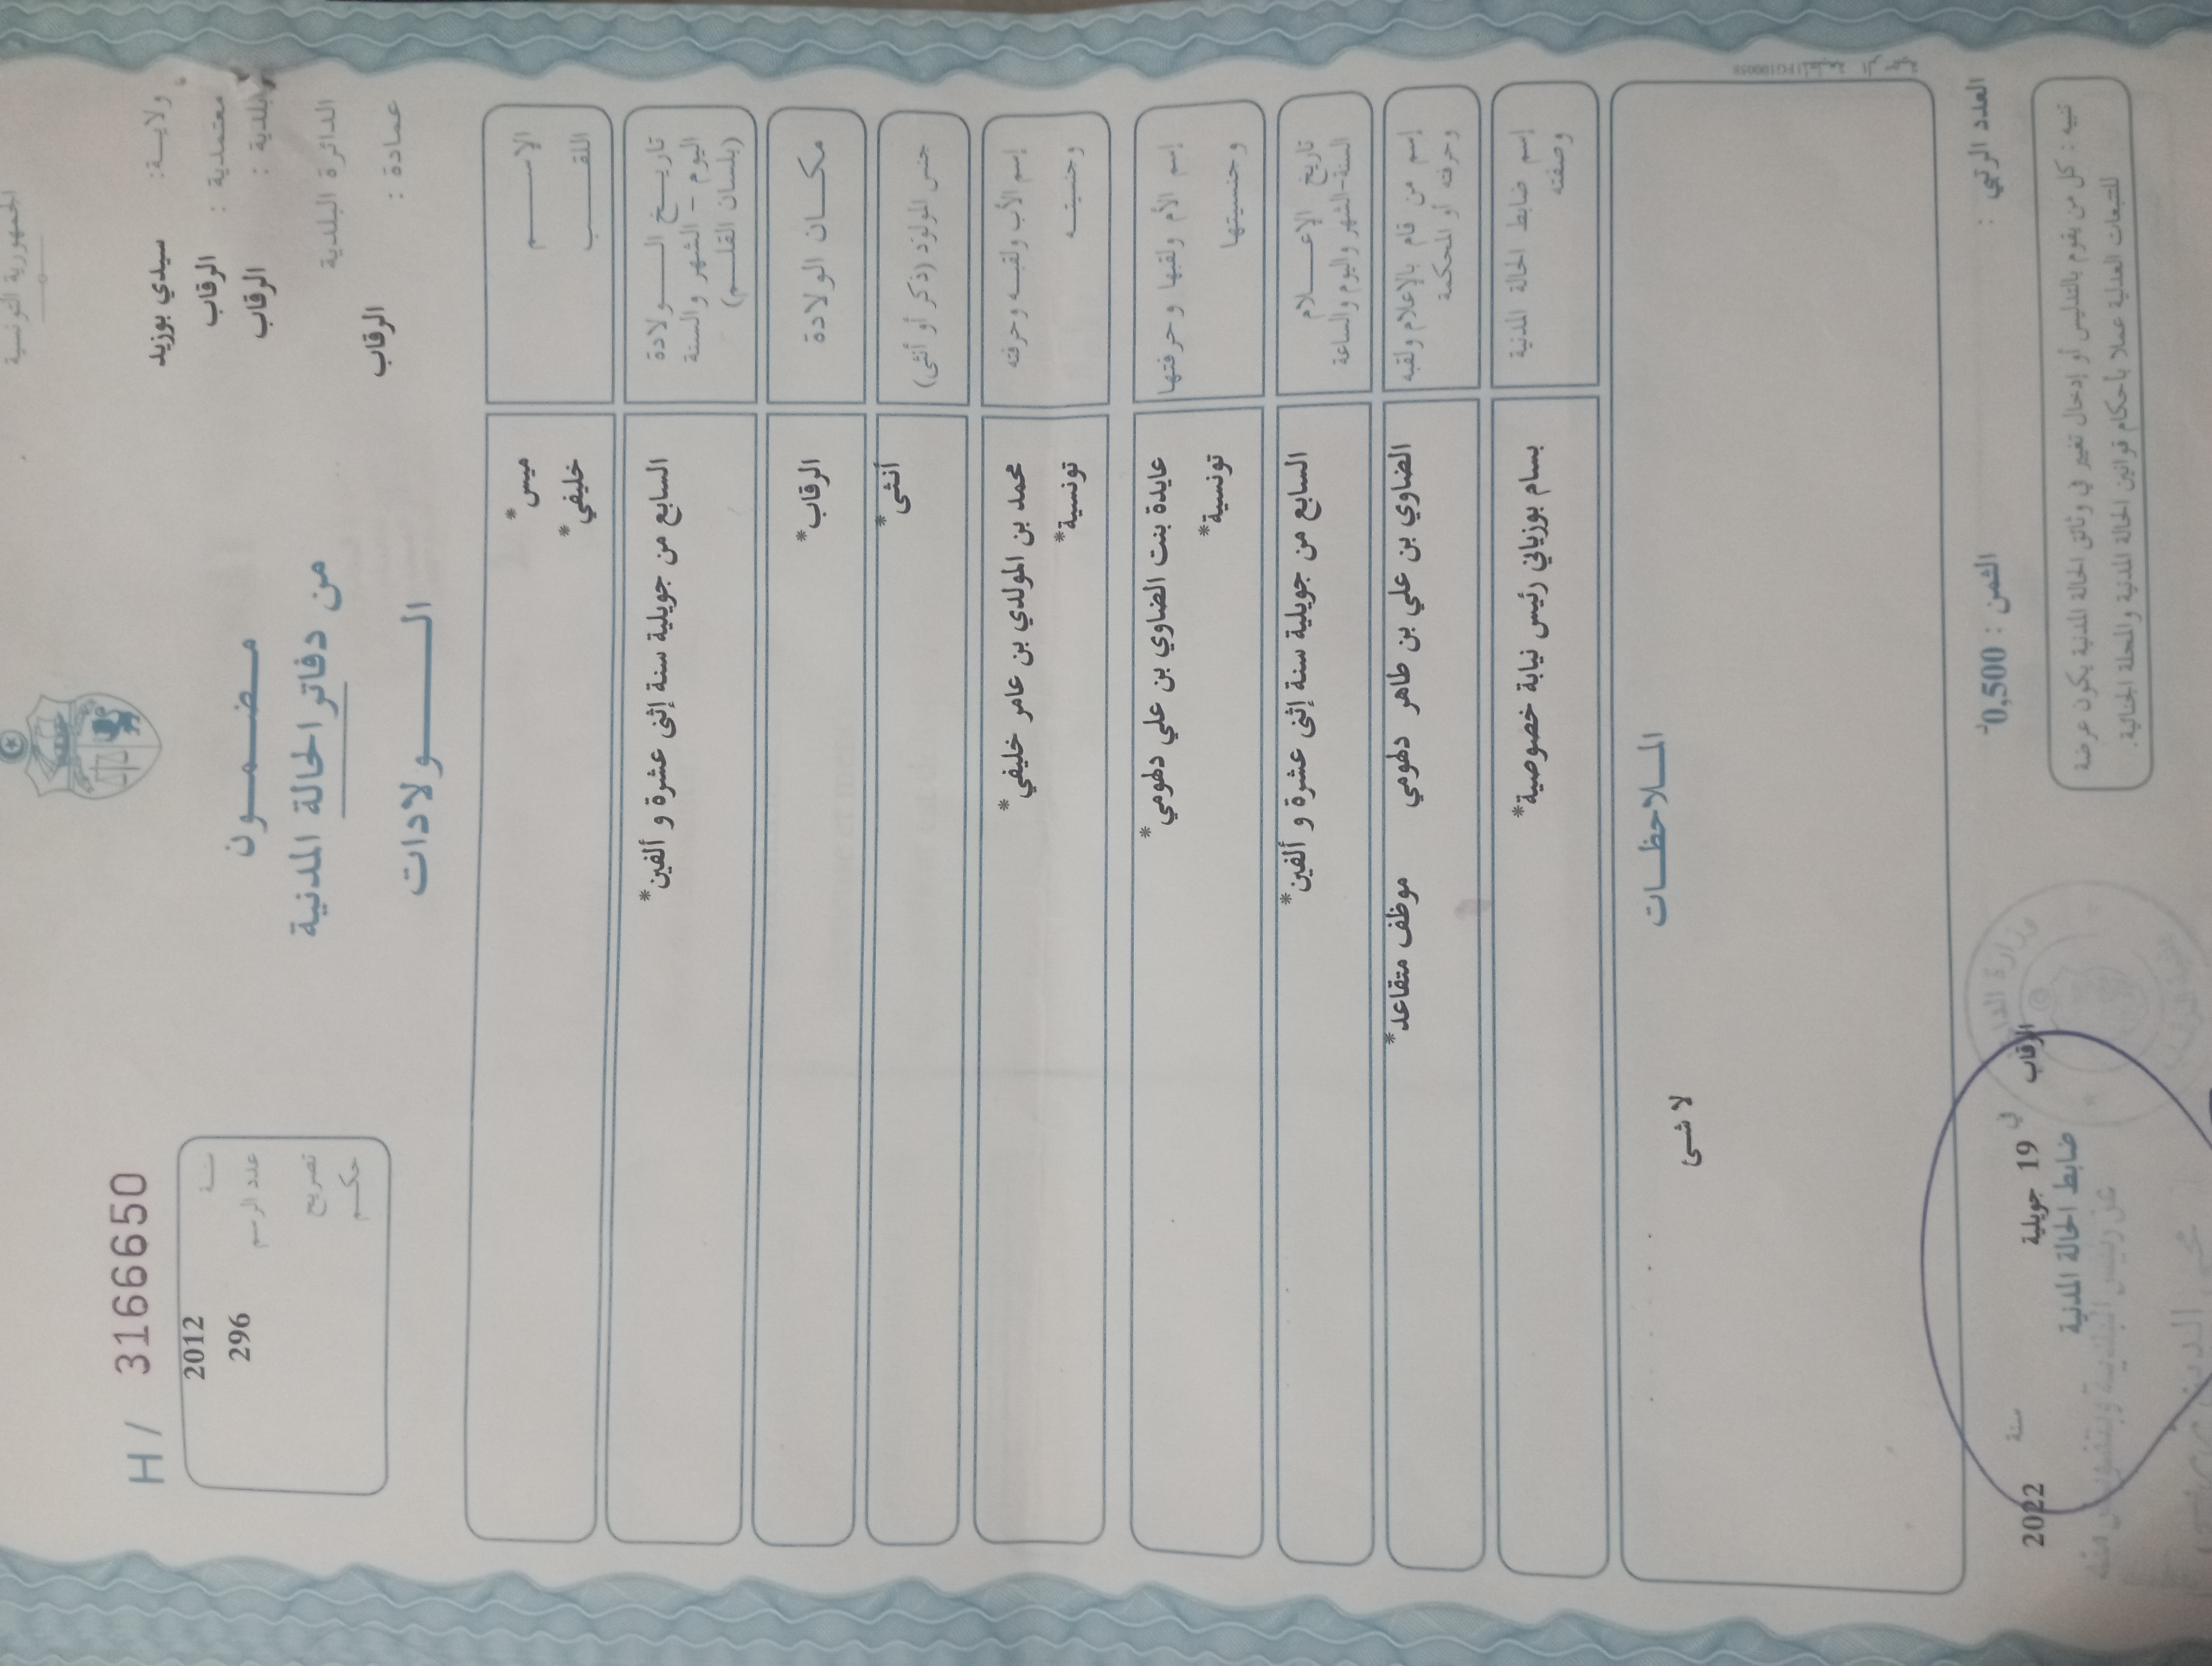 الجمهورية التونسية
H / 3166650
ولايــة : سيدي بوزيد
معتمدية : الرقاب
بلدية : الرقاب
الدائرة البلدية
عمادة : الرقاب
مـضــمــون
من دفاتر الحالة المدنية
الـــــولادات
سنــة 2012
عدد الرسم 296
تصريح
حكــم
الإســــم ميس*
اللقــــب خليفي*
تاريــخ الــــولادة السابع من جويلية سنة إثنى عشرة و ألفين*
اليوم - الشهر والسنة
(بلسان القلــم)
مكــان الولادة الرقاب*
جنس المولود (ذكر أو أنثى) أنثى*
إسم الأب ولقبــه وحرفته محمد بن المولدي بن عامر خليفي*
وجنسيتــه تونسية*
إسم الأم ولقبها وحرفتها عايدة بنت الضاوي بن علي دهومي*
وجنسيتها تونسية*
تاريخ الإعــــلام السابع من جويلية سنة إثنى عشرة و ألفين*
السنة-الشهر واليوم والساعة
إسم من قام بالإعلام ولقبه الضاوي بن علي بن طاهر دهومي موظف متقاعد*
وحرفته أو المحكمة
إسم ضابط الحالة المدنية بسام بوزياني رئيس نيابة خصوصية*
وصفته
المـلاحظــات
لا شئ
العدد الرتبي :
الثمن : 0,500د
الرقاب في 19 جويلية سنة 2022
ضابط الحالة المدنية
عن رئيس البلدية وبتفويض منه
تنبيه : كل من يقوم بالتدليس أو إدخال تغيير في وثائق الحالة المدنية يكون عرضة
للتتبعات العدلية عملا بأحكام قوانين الحالة المدنية والمجلة الجنائية.